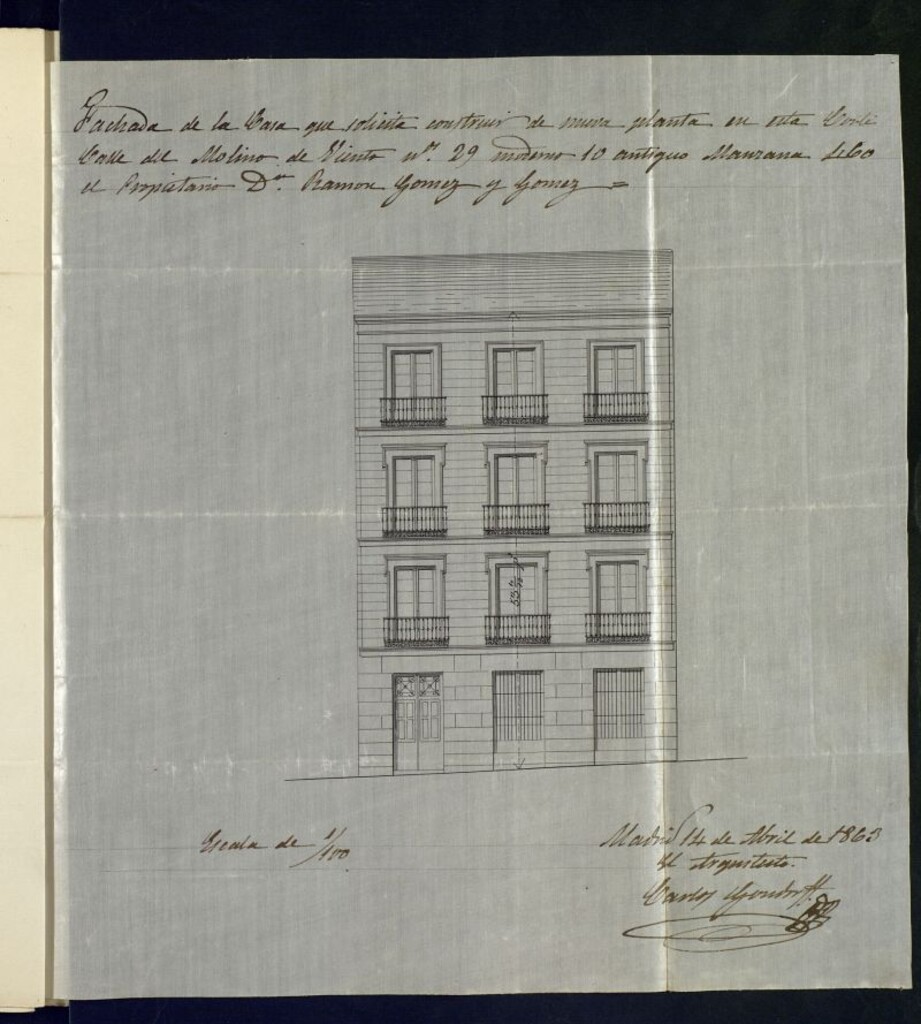 Fachada de la Casa que solicita construir de nueva planta en esta Corte
Calle del Molino de Viento nº. 29 moderno 10 antiguo Manzana 460
el Propietario Dn. Ramon Gomez y Gomez =
Escala de 1/100
Madrid 14 de Abril de 1863
El Arquitecto.
Carlos Gondorff